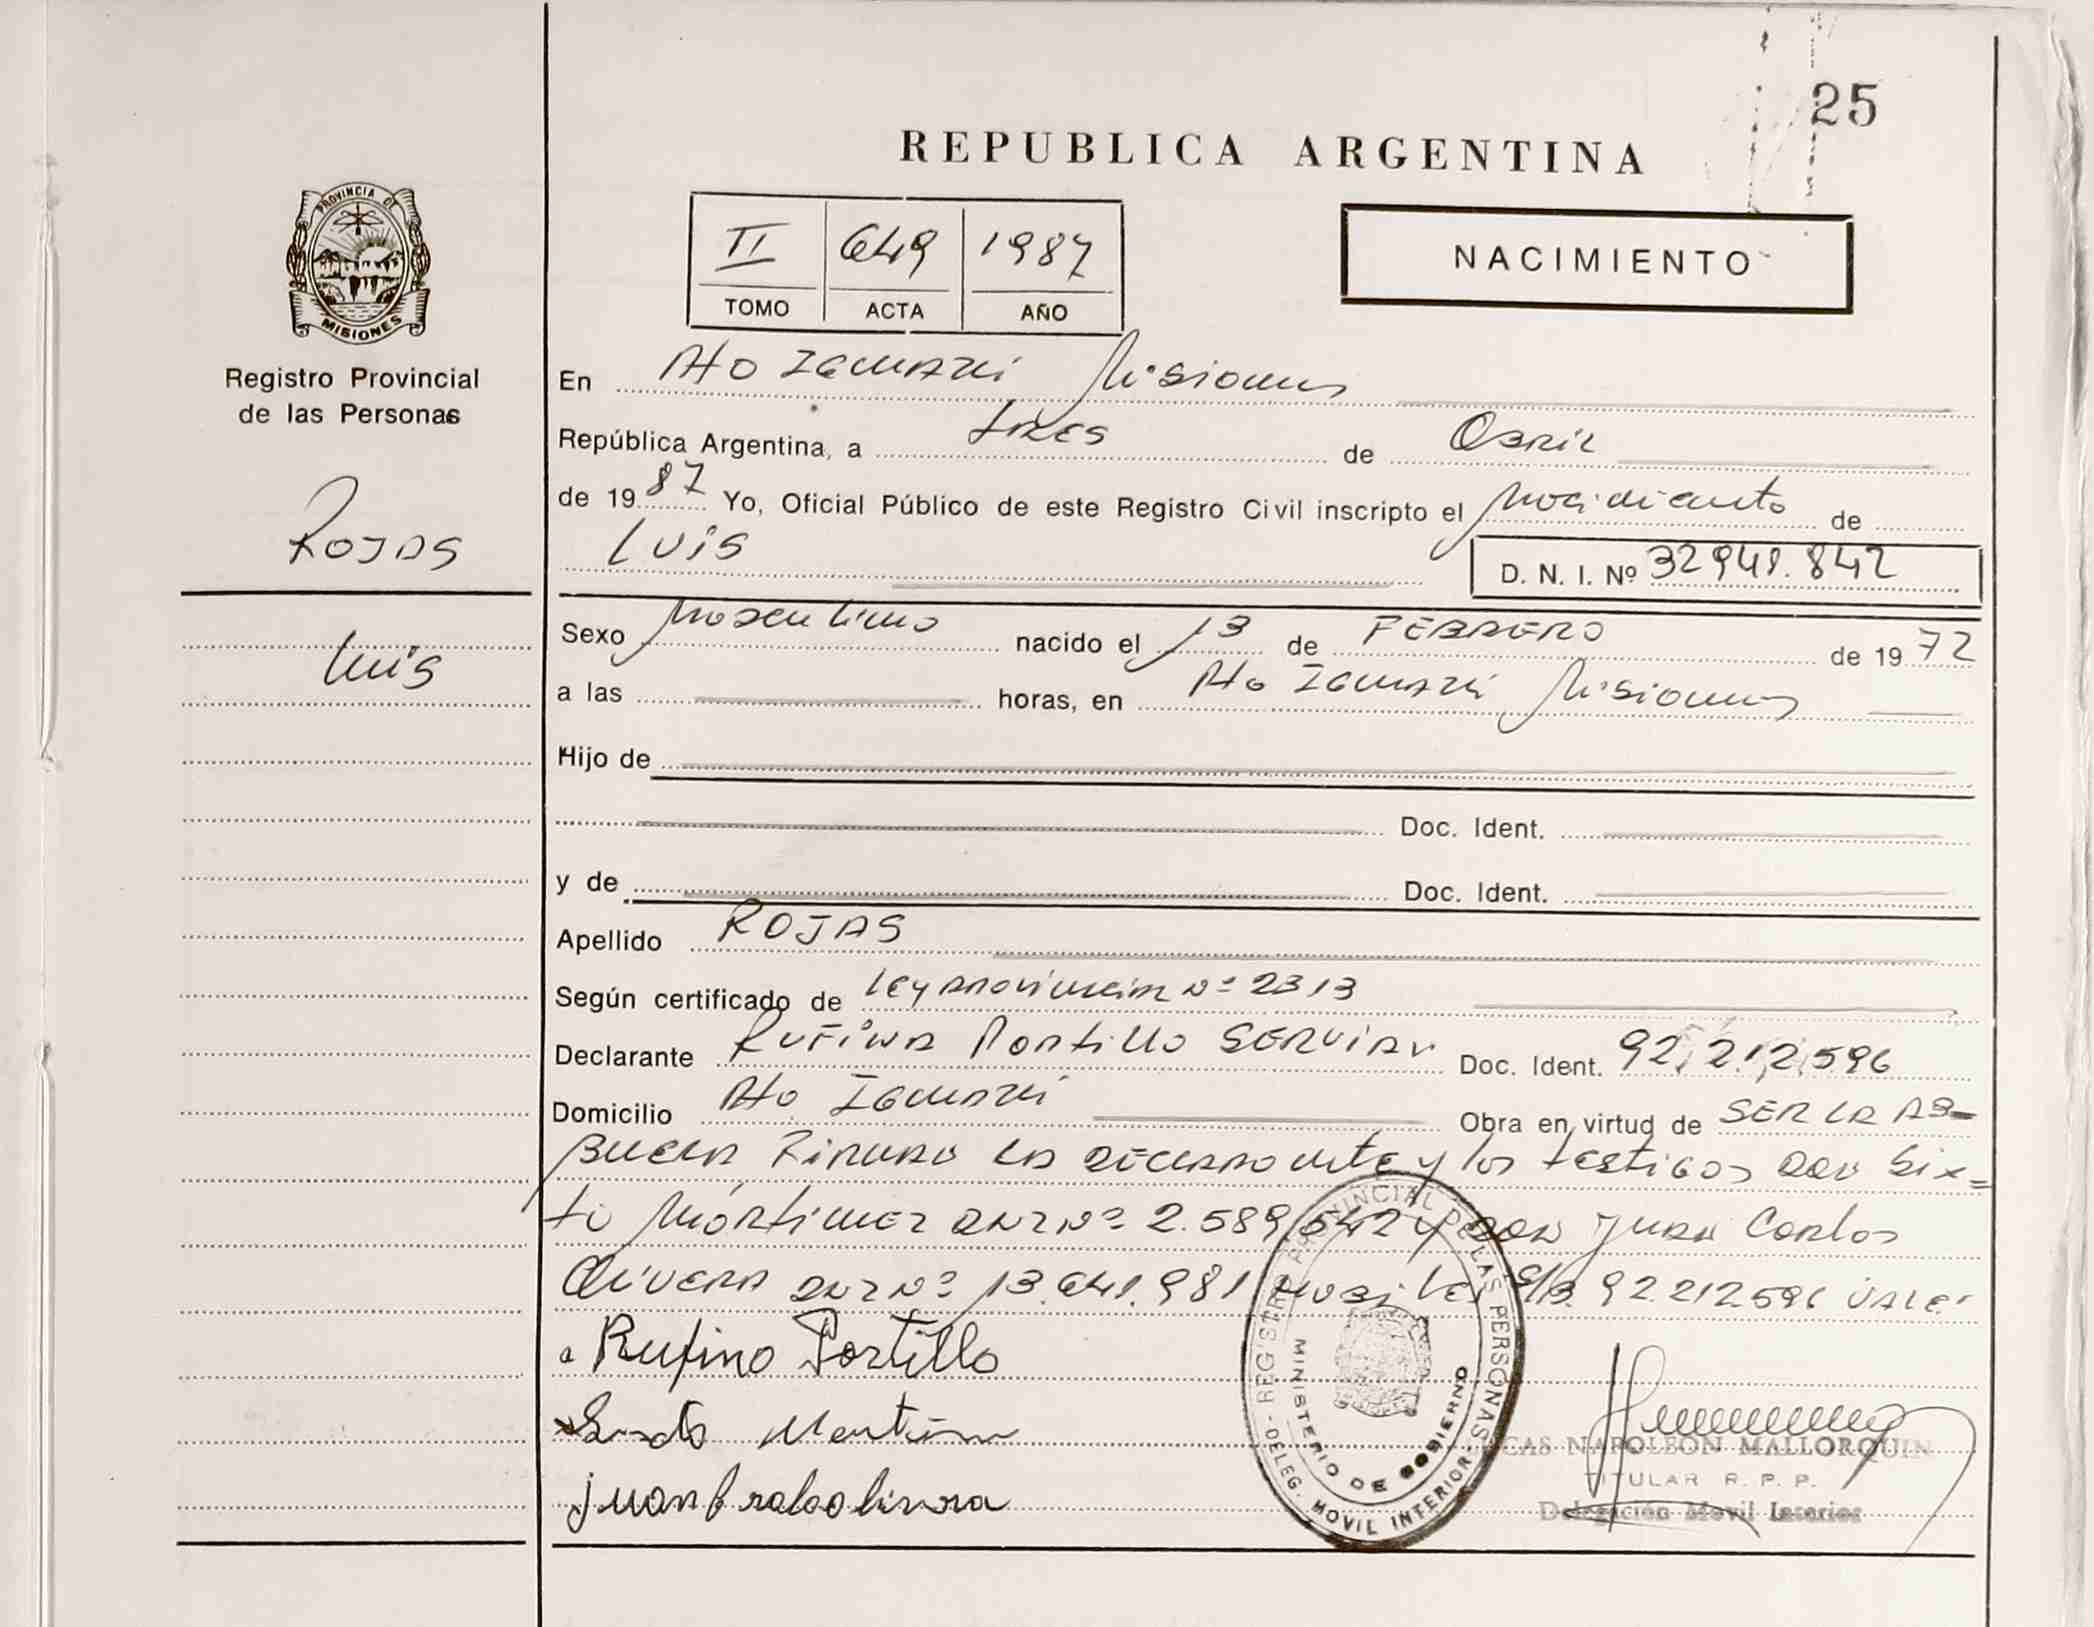 25
REPUBLICA ARGENTINA
PROVINCIA DE
MISIONES
II 649 1987
TOMO ACTA AÑO
NACIMIENTO
Registro Provincial
de las Personas
ROJAS
Luis
En Pto Iguazú Misiones
República Argentina, a tres de Abril
de 1987 Yo, Oficial Público de este Registro Civil inscripto el Nacimiento de
LUIS
D. N. I. Nº 32941.842
Sexo Masculino nacido el 13 de FEBRERO de 1972
a las horas, en Pto Iguazú Misiones
Hijo de
Doc. Ident.
y de Doc. Ident.
Apellido ROJAS
Según certificado de Ley Provincial Nº 2313
Declarante RUFINA Portillo SERVIAN Doc. Ident. 92.212.596
Domicilio Pto Iguazú Obra en virtud de SER LA AB=
BUELA Firman la declarante y los testigos don Six=
to Mártinez DNI Nº 2.589.542 y don Juan Carlos
Olivera DNI Nº 13.641.981 S/B. 92212596 VALE.
Rufino Portillo
REGISTRO PROVINCIAL DE LAS PERSONAS
MINISTERIO DE GOBIERNO
DELEG. MOVIL INTERIOR
CAS NAPOLEON MALLORQUIN
TITULAR R. P. P.
Delegación Movil Interior